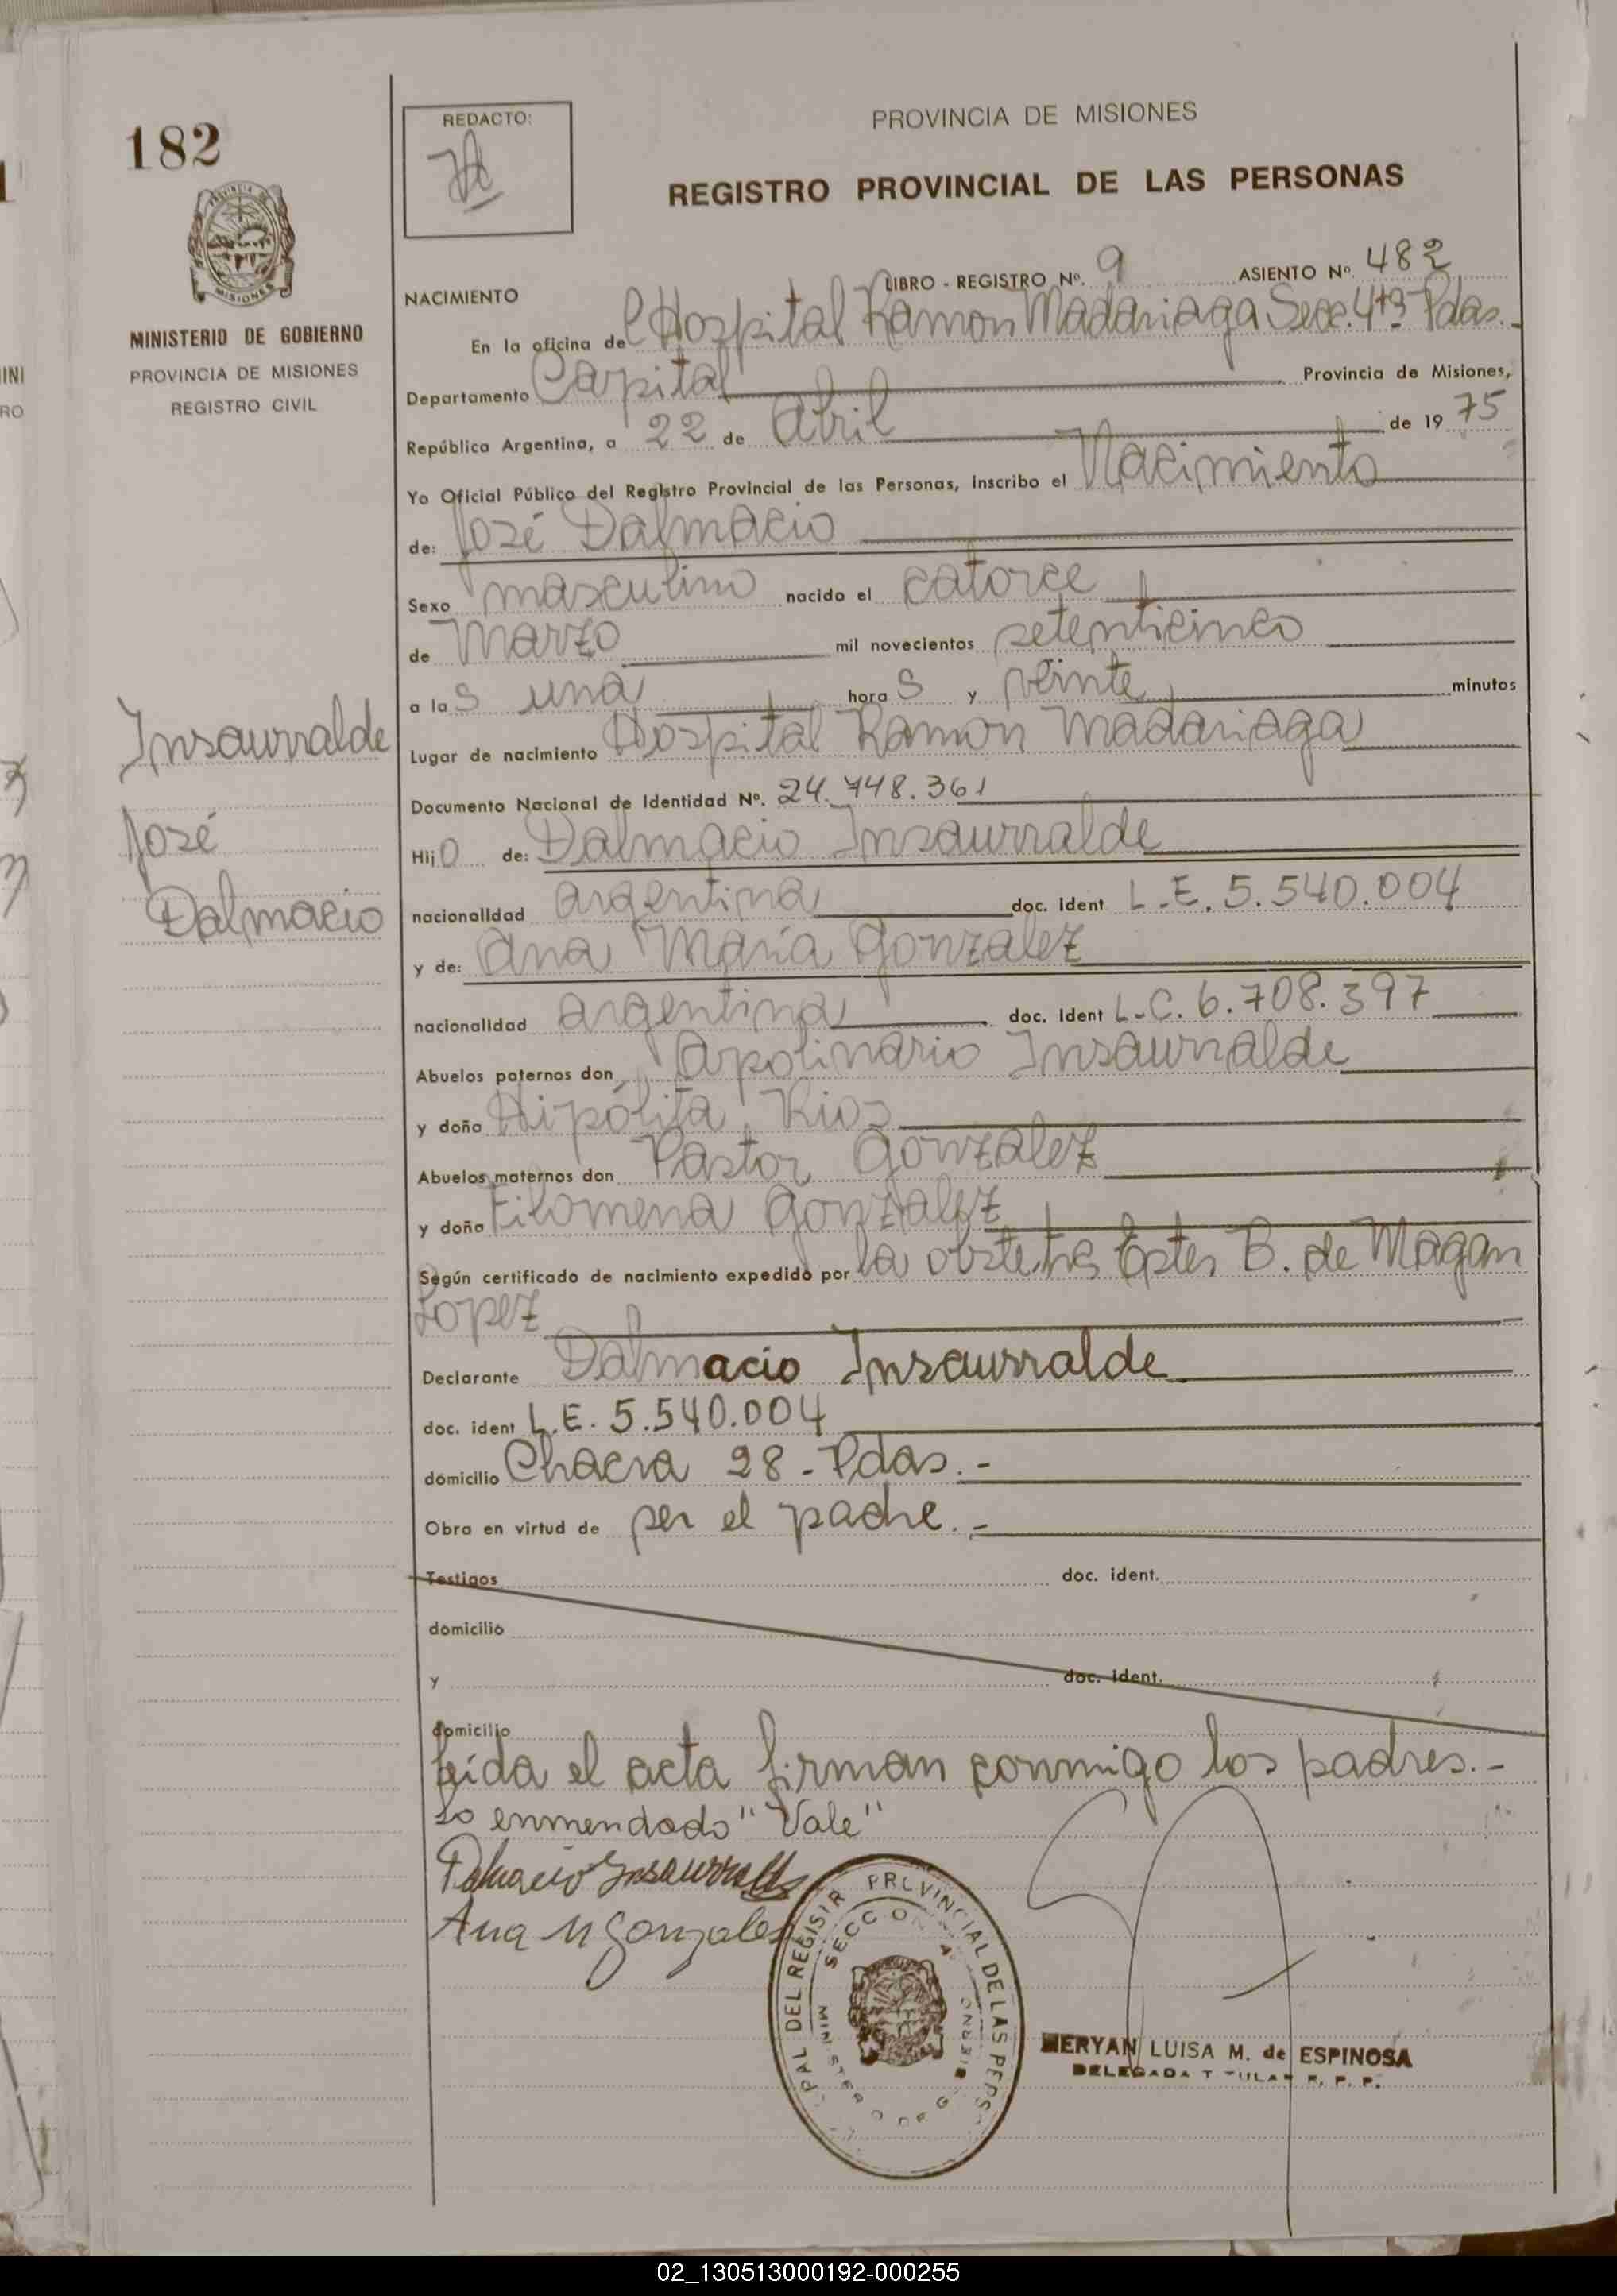 182
REDACTO:
PROVINCIA DE MISIONES
REGISTRO PROVINCIAL DE LAS PERSONAS
MISIONES
MINISTERIO DE GOBIERNO
PROVINCIA DE MISIONES
REGISTRO CIVIL
NACIMIENTO
LIBRO - REGISTRO Nº. 9 ASIENTO Nº. 482
En la oficina del Hospital Ramon Madariaga Secc. 4ta Pdas.
Departamento Capital Provincia de Misiones,
República Argentina, a 22 de Abril de 1975
Yo Oficial Público del Registro Provincial de las Personas, inscribo el Nacimiento
de: José Dalmacio
Sexo masculino nacido el catorce
de Marzo mil novecientos setenticinco
a las una horas y veinte minutos
Insaurralde
José
Dalmacio
Lugar de nacimiento Hospital Ramon Madariaga
Documento Nacional de Identidad Nº. 24.748.361
Hijo de: Dalmacio Insaurralde
nacionalidad argentina doc. ident L.E. 5.540.004
y de: Ana María Gonzalez
nacionalidad argentina doc. ident L.C. 6.708.397
Abuelos paternos don Apolinario Insaurralde
y doña Hipólita Rios
Abuelos maternos don Pastor Gonzalez
y doña Filomena Gonzalez
Según certificado de nacimiento expedido por la obstetra Ester B. de Magan
Lopez
Declarante Dalmacio Insaurralde
doc. ident L.E. 5.540.004
domicilio Chacra 28 - Pdas. -
Obra en virtud de ser el padre. -
Testigos doc. ident.
domicilio
y doc. ident.
domicilio
Leida el acta firman conmigo los padres. -
Lo enmendado "Vale"
Dalmacio Insaurralde
Ana M Gonzales
PAL DEL REGISTR PROVINCIAL DE LAS PERS
SECCION 4
MINISTERIO DE GOBIERNO
MERYAN LUISA M. de ESPINOSA
DELEGADA TITULAR R. P. P.
02_130513000192-000255